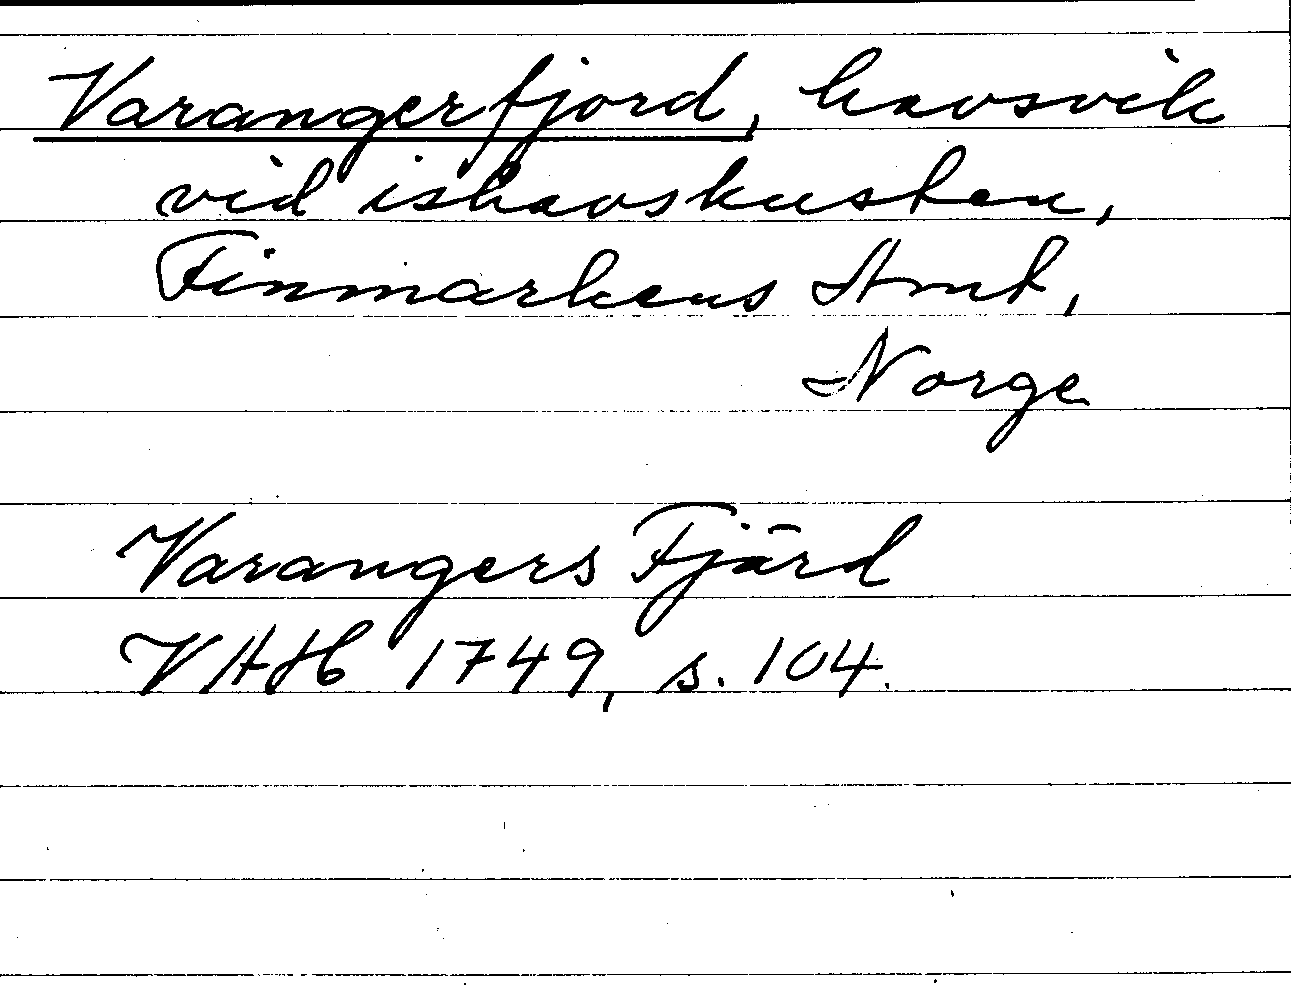 Varangerfjord, havsvik
vid ishavskusten,
Finmarkens Amt,
Norge
Varangers Fjärd
VAH 1749, s. 104.